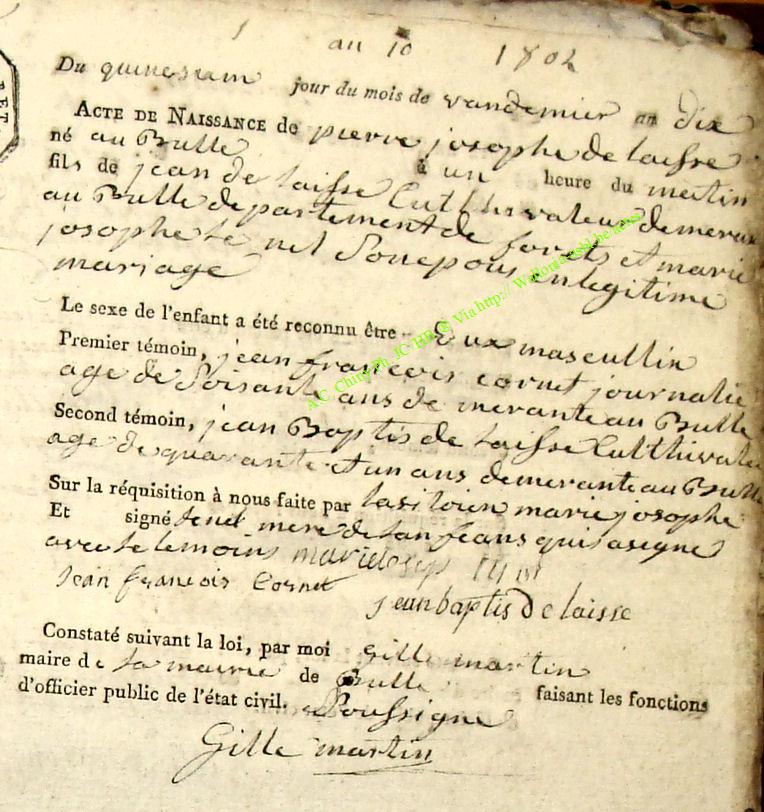 1 an 10 1802
Du quinesiam jour du mois de vandemier an dix
ACTE DE NAISSANCE de pierre josophe de laisse
né au Bulle à un heure du mertin
fils de jean de laisse Cultthivateur demerant
au Bulle departement de forets et marie
josophe te net Sonepous en legitime
mariage
Le sexe de l'enfant a été reconnu être Eux mascullin
Premier témoin, jean francois cornet journalie
age de Soisante ans de merante au Bulle
Second témoin, jean Baptis de laisse Cultthivate
age de quarante et un ans demerante au Bulle
Sur la réquisition à nous faite par marie josophe
Et signé tenet mere de lanfeans qui a signe
avec te temoins marie
jean francois Cornet
jean baptis De laisse
Constaté suivant la loi, par moi gille martin
maire de la mairie de Bulle faisant les fonctions
d'officier public de l'état civil. Soussigne
Gille martin
RET.